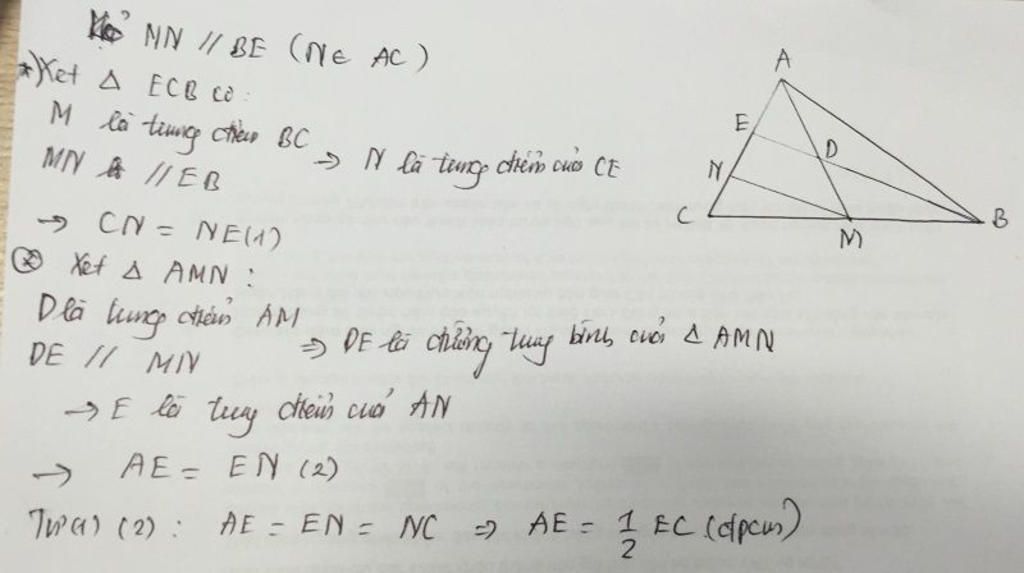 Kẻ MN // BE (N ∈ AC)
*) Xét Δ ECB có:
M là trung điểm BC
MN // EB
→ N là trung điểm của CE
→ CN = NE (1)
* Xét Δ AMN :
D là trung điểm AM
DE // MN
⇒ DE là đường trung bình của Δ AMN
→ E là trung điểm của AN
→ AE = EN (2)
Từ (1) (2) : AE = EN = NC ⇒ AE = 1/2 EC (đpcm)
A
E
D
N
C
M
B